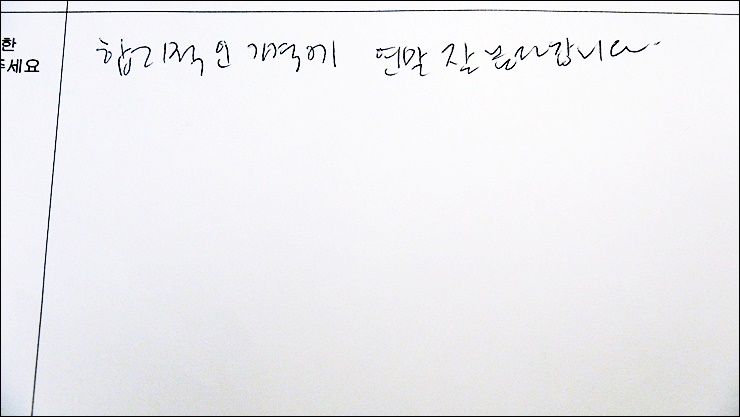 한
주세요
합리적인 가격에 연말 잘 놀다갑니다.